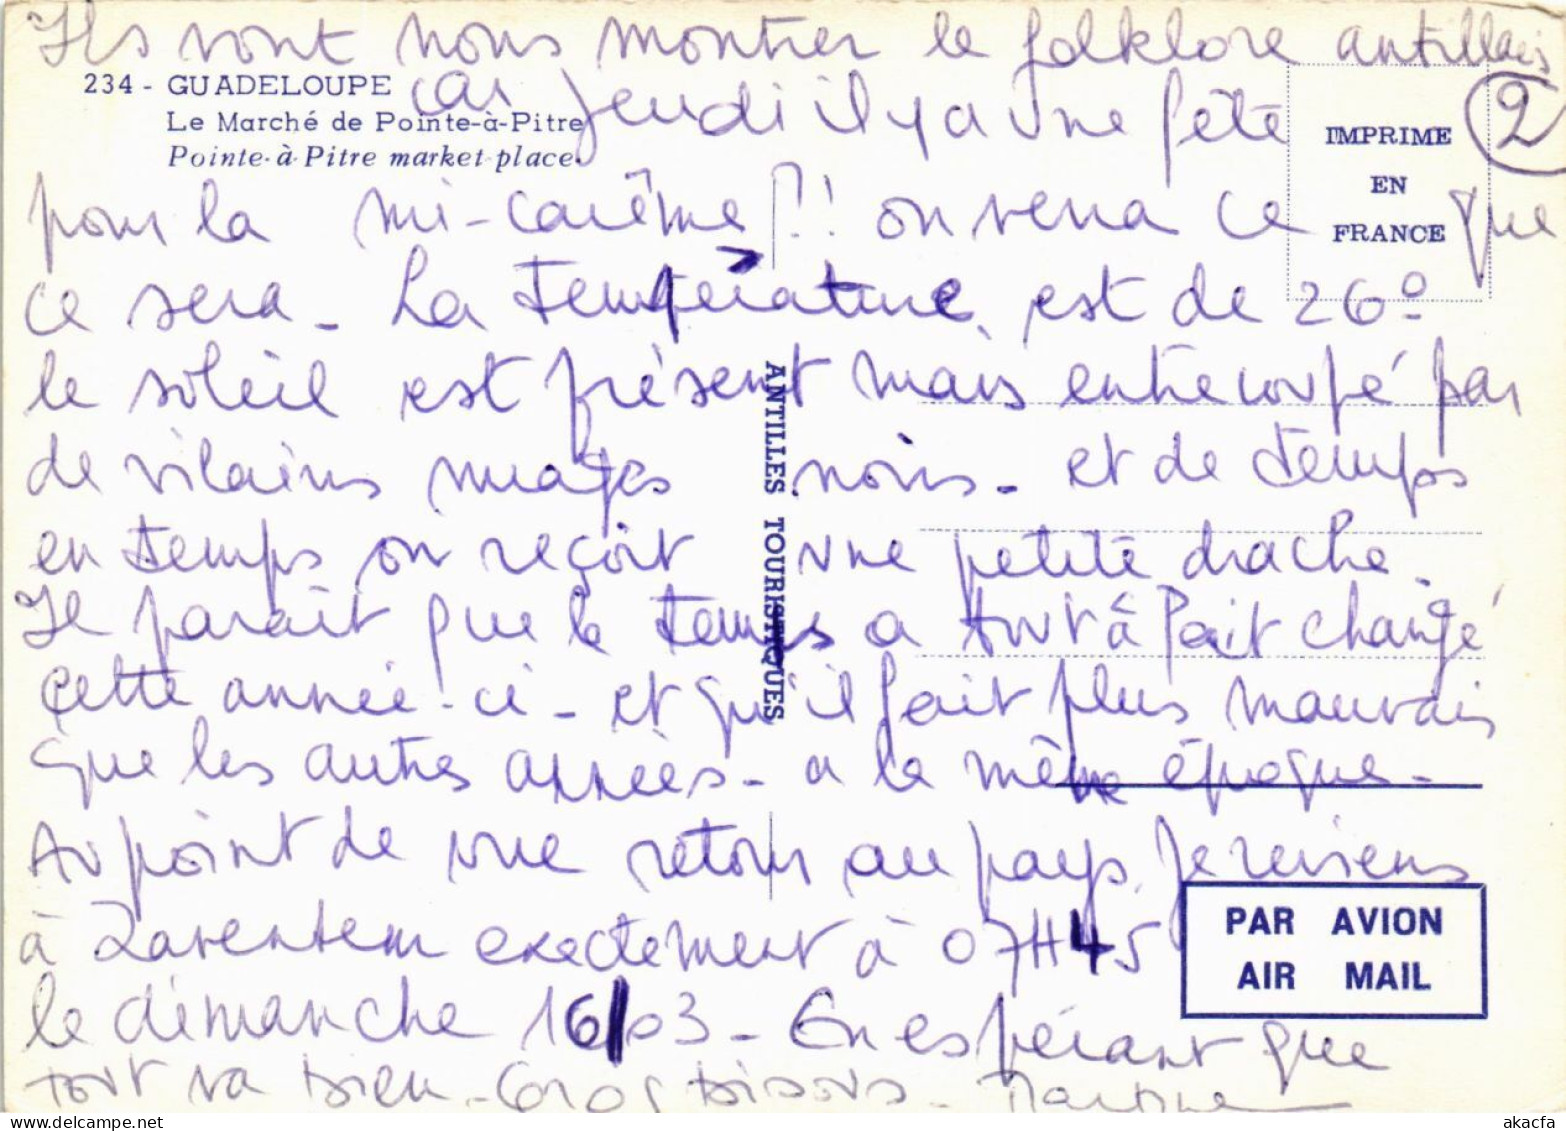 Ils vont nous montrer le folklore antillais
234 - GUADELOUPE
car jeudi il y a une fête
2
Le Marché de Pointe-à-Pitre
Pointe-à-Pitre market place.
IMPRIME
EN
FRANCE
pour la mi-carême!! on verra ce que
ce sera - La température est de 26°
le soleil est présent mais entrecoupé par
de vilains nuages noirs - et de temps
en temps on reçoit une petite drache.
Il paraît que le temps a tout à fait changé
cette année-ci - et qu'il fait plus mauvais
que les autres années - a la même époque -
ANTILLES TOURISTIQUES
Au point de vue retour au pays, je reviens
à Zaventem exactement à 07H45
le dimanche 16/03 - En espérant que
tout va bien - Gros bisous - Martine
PAR AVION
AIR MAIL
akacfa